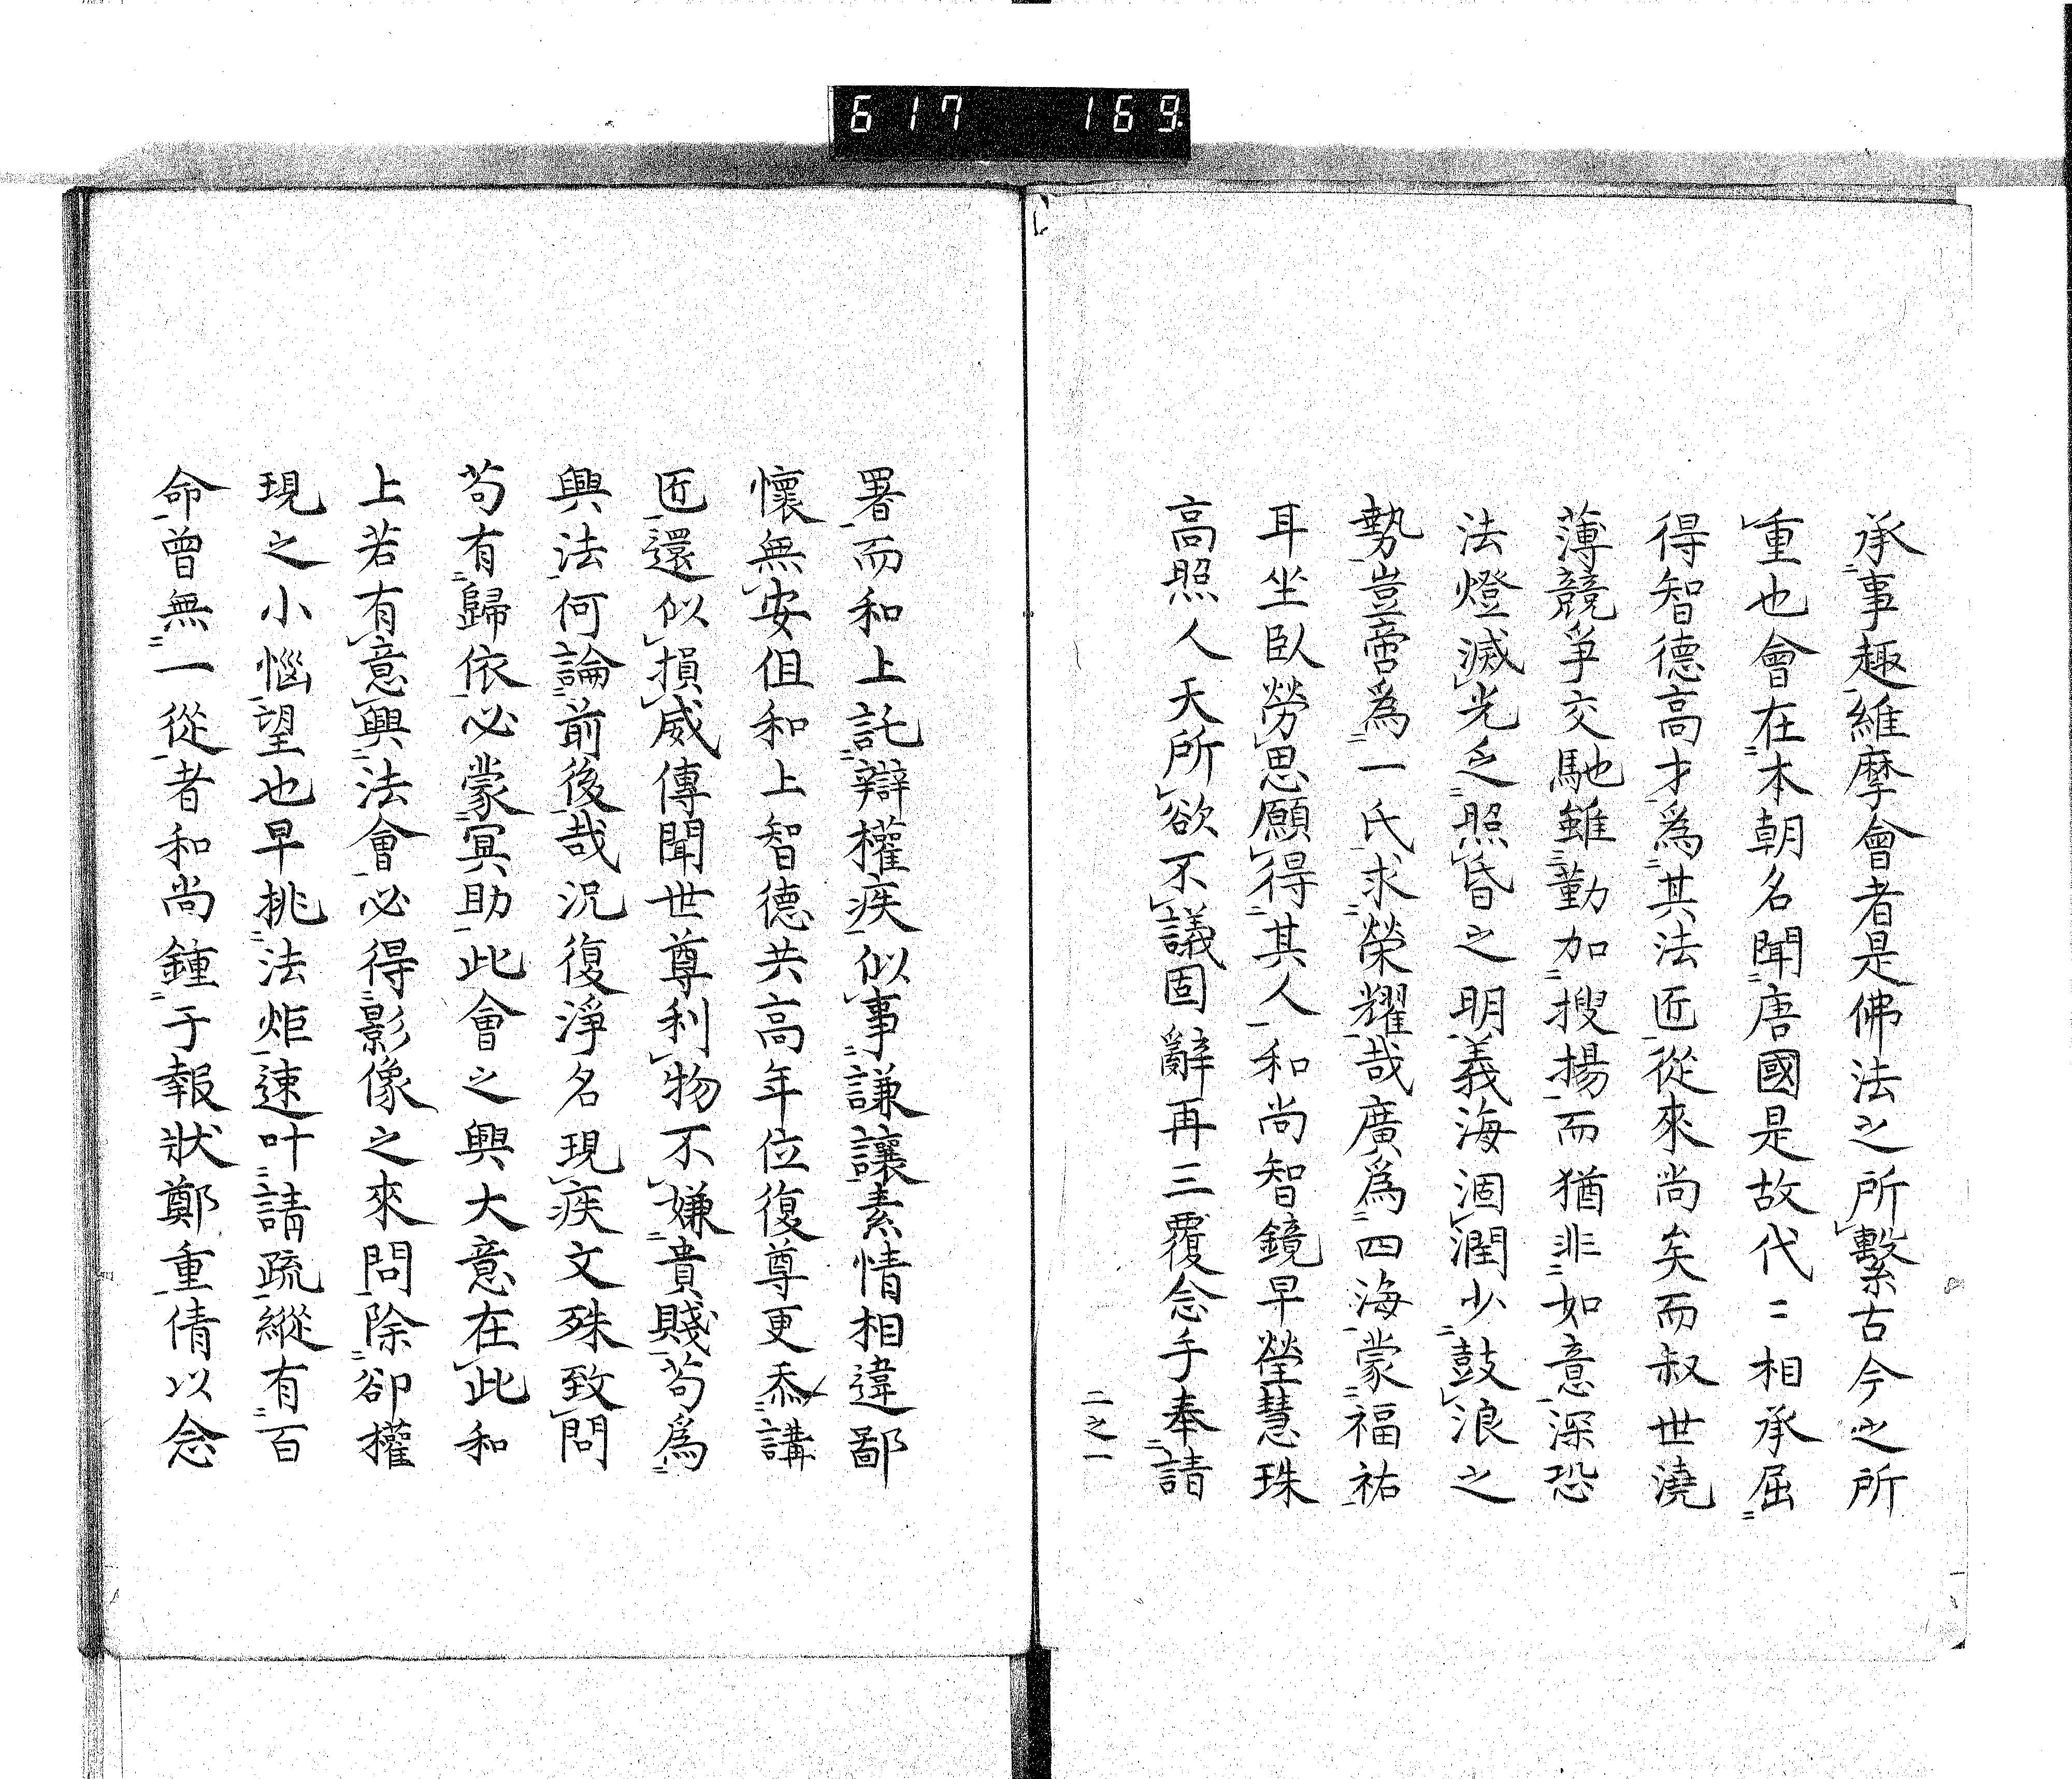 617 169
承事趣維摩會者是佛法之所繫古今之所
重也會在本朝名聞唐國是故代〻相承屈
得智德高才爲其法匠從來尚矣而叔世澆
薄競爭交馳雖勤加搜揚而猶非如意深恐
法燈滅光乏照昏之明義海涸潤少鼓浪之
勢豈啻爲一氏求榮耀哉廣爲四海蒙福祐
耳坐臥勞思願得其人和尚智鏡早瑩慧珠
高照人天所欲不議固辭再三覆念手奉請
二之一
署而和上託辯權疾似事謙讓素情相違鄙
懷無安伹和上智德共高年位復尊更忝講
匠還似損威傳聞世尊利物不嫌貴賤苟爲
興法何論前後哉況復淨名現疾文殊致問
苟有歸依必蒙冥助此會之興大意在此和
上若有意興法會必得影像之來問除卻權
現之小惱望也早挑法炬速叶請疏縱有百
命曾無一從者和尚鍾于報狀鄭重倩以念